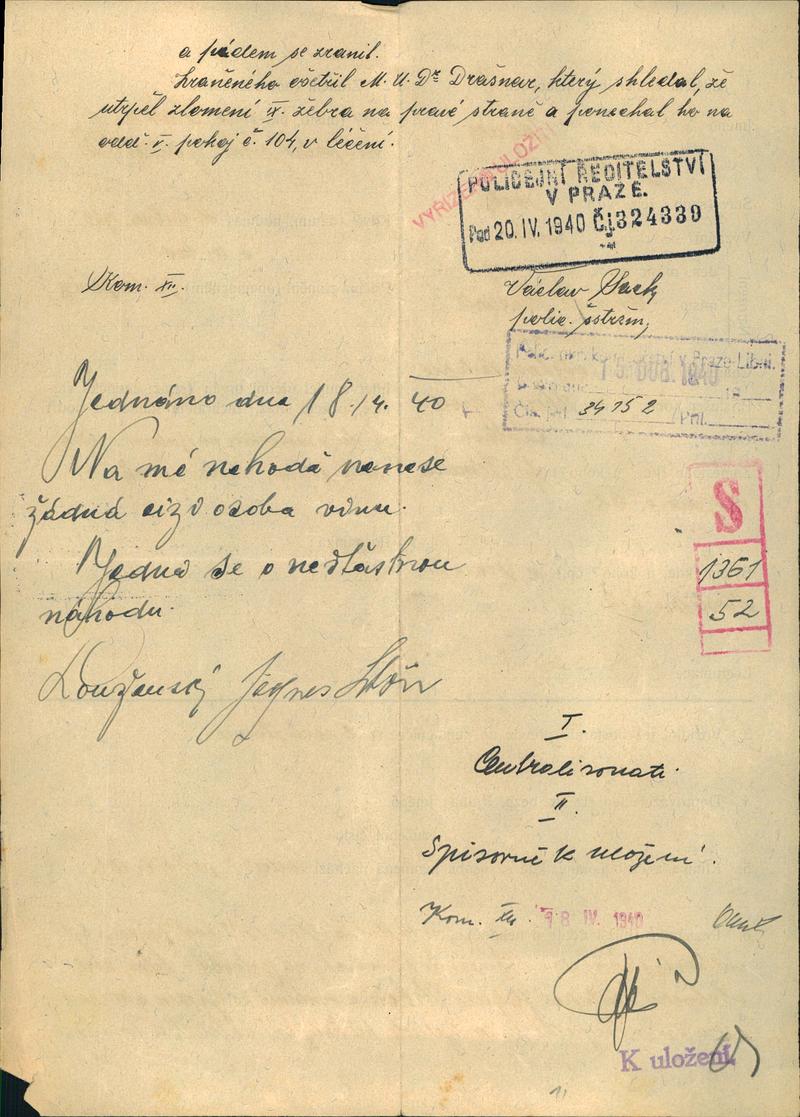 a pádem se zranil.
Zraněného ošetřil M. U. Dr Drašnar, který shledal, že
utrpěl zlomení IX. žebra na pravé straně a ponechal ho na
odd. V. pokoj č. 104, v léčení.
VYŘÍZENO ULOŽIT
POLICEJNÍ ŘEDITELSTVÍ
V PRAZE.
Pod 20. IV. 1940 Č.j. 324339
Kom. XII.
Václav
polic.
v Praze-Libni.
Čís. jed. 34752 / Příl.
Jednáno dna 18./4. 40
Na mé nehodě nenese
žádná cizí osoba vinu.
Jedná se o nešťastnou
náhodu.
S
1361
52
I.
Centralisovati.
II.
Spisovně k uložení.
Kom. 18 IV. 1940
K uložení.